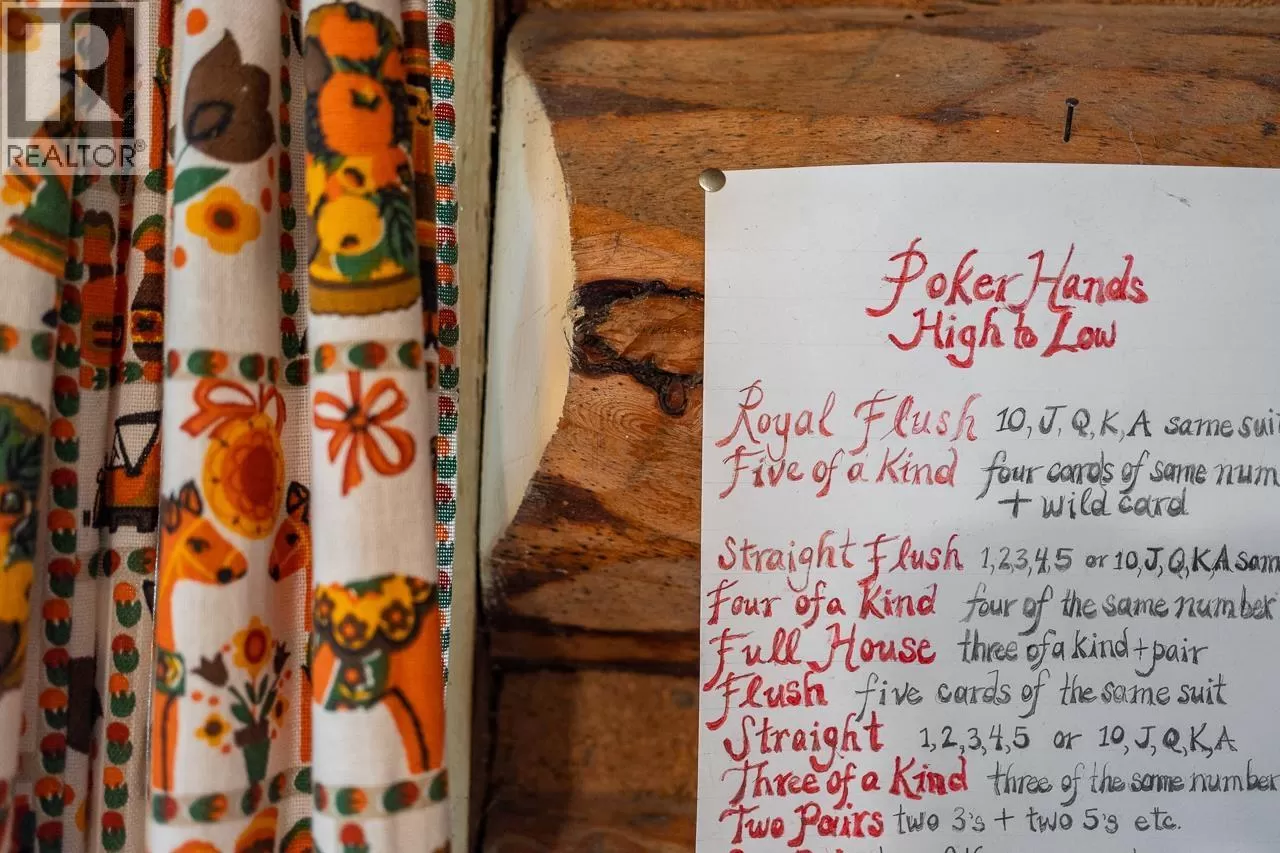 REALTOR®
Poker Hands
High to Low
Royal Flush 10, J, Q, K, A same sui
Five of a Kind four cards of same num
+ wild card
Straight Flush 1,2,3,4,5 or 10,J,Q,K,A sam
Four of a Kind four of the same number
Full House three of a kind + pair
Flush five cards of the same suit
Straight 1,2,3,4,5 or 10, J, Q, K, A
Three of a Kind three of the same number
Two Pairs two 3's + two 5's etc.